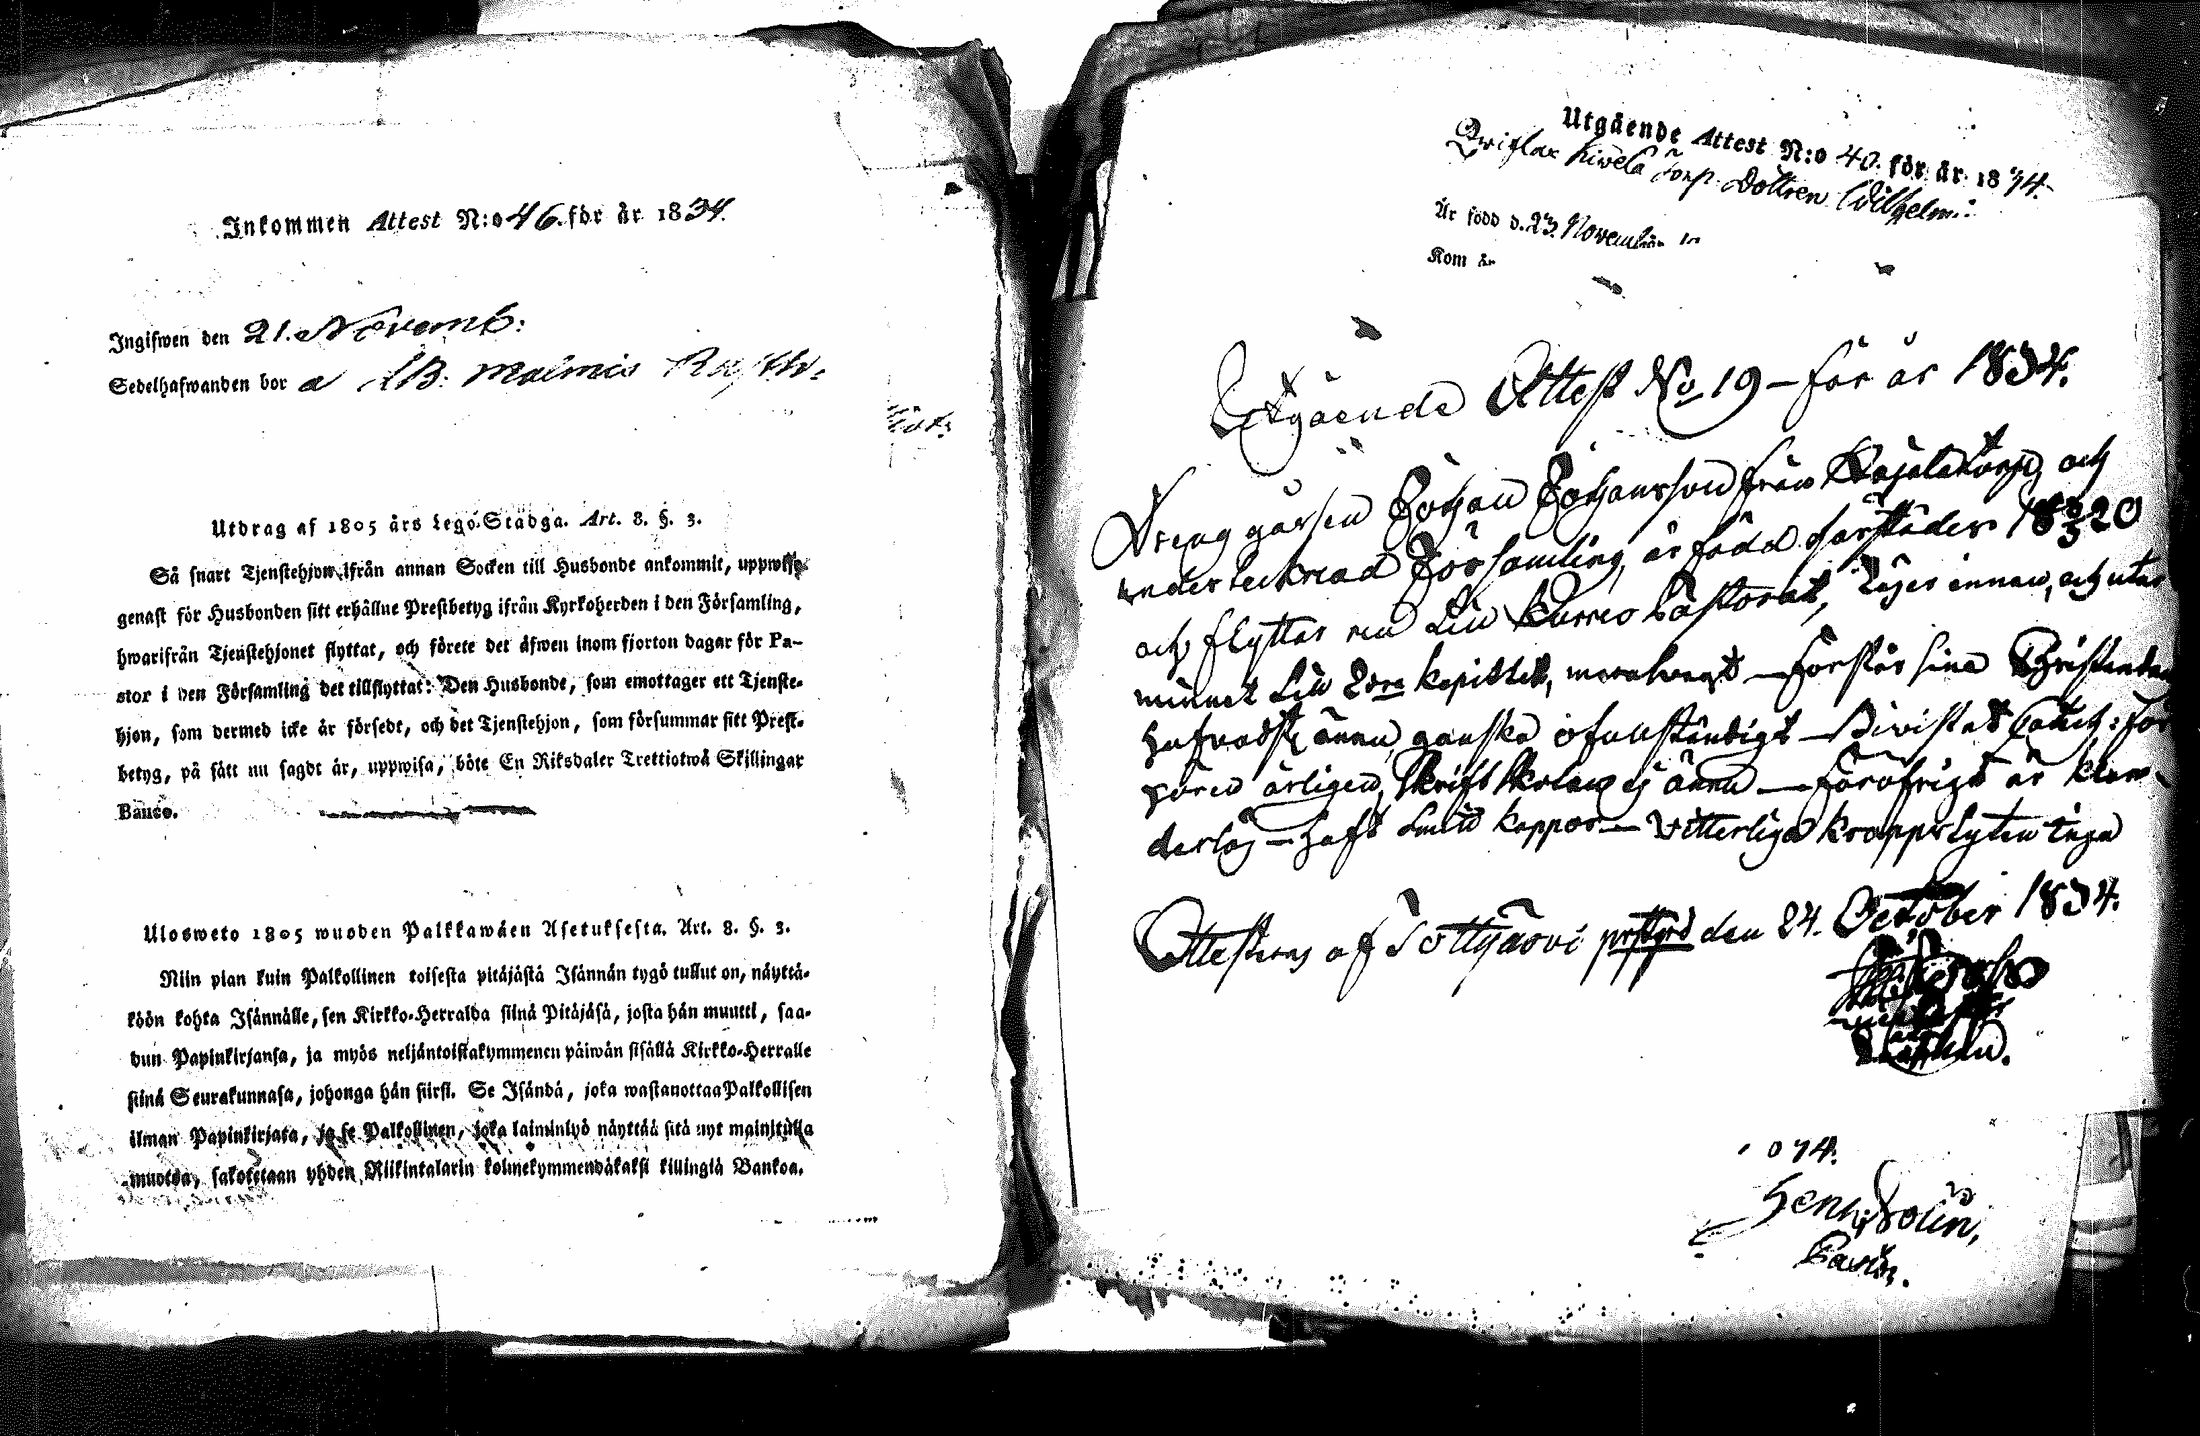 Inkommen Attest N:o 46. för år 1834.
Ingifwen den 21. Novemb:
Sedelhafwanden bor a LB: Malmis Rusth:
Utdrag af 1805 års Lego-Stadga. Art. 8. §. 3.
Så snart Tjenstehjon ifrån annan Socken till Husbonde ankommit, uppwise
genast för Husbonden sitt erhållne Prestbetyg ifrån Kyrkoherden i den Församling,
hwarifrån Tjenstehjonet flyttat, och förete det äfwen inom fjorton dagar för Pa-
stor i den Församling det tillflyttat: Den Husbonde, som emottager ett Tjenste-
hjon, som dermed icke är försedt, och det Tjenstehjon, som försummar sitt Prest-
betyg, på sätt nu sagdt är, uppwisa, böte En Riksdaler Trettiotwå Skillingar
Banco.
Ulosweto 1805 wuoden Palkkawäen Asetuksesta. Art. 8. §. 3.
Niin pian kuin Palkollinen toisesta pitäjästä Isännän tygö tullut on, näyttä-
köön kohta Isännälle, sen Kirkko-Herralda siinä Pitäjäsä, josta hän muutti, saa-
dun Papinkirjansa, ja myös neljäntoistakymmenen päiwän sisällä Kirkko-Herralle
siinä Seurakunnasa, johonga hän siirsi. Se Isändä, joka wastanottaa Palkollisen
ilman Papinkirjata, ja se Palkollinen, joka laiminlyö näyttää sitä nyt mainitulla
muotoa, sakotetaan yhden Riikintalarin kolmekymmendäkaksi killingiä Bankoa.
Utgående Attest N:o 40. för år 1834.
Qviflax Kiwelä Torp Dottren Wilhelm:
Är född d. 23 November
Kom år
Utgående Attest No 19 – för år 1834.
Dreng gåssen Johan Johansson från Kajala torp, och
undertecknad Församling, är född härstädes 1820
och flyttar nu till Kumo Pastorat, Läser innan, och utan
minnet till 2dra kapitlet, – förstår sina Christendoms
ännu ganska ofullständigt – Bivistat Catech: för
hören årligen, Skriftskolan ej ännu – föröfrigt är klan-
derlös – haft Smitt koppor – Vitterliga kroppslyten inga
Attesteras af Tottijärvi den 24. October 1834.
1834.
Henr: Bolin,
Pastor.